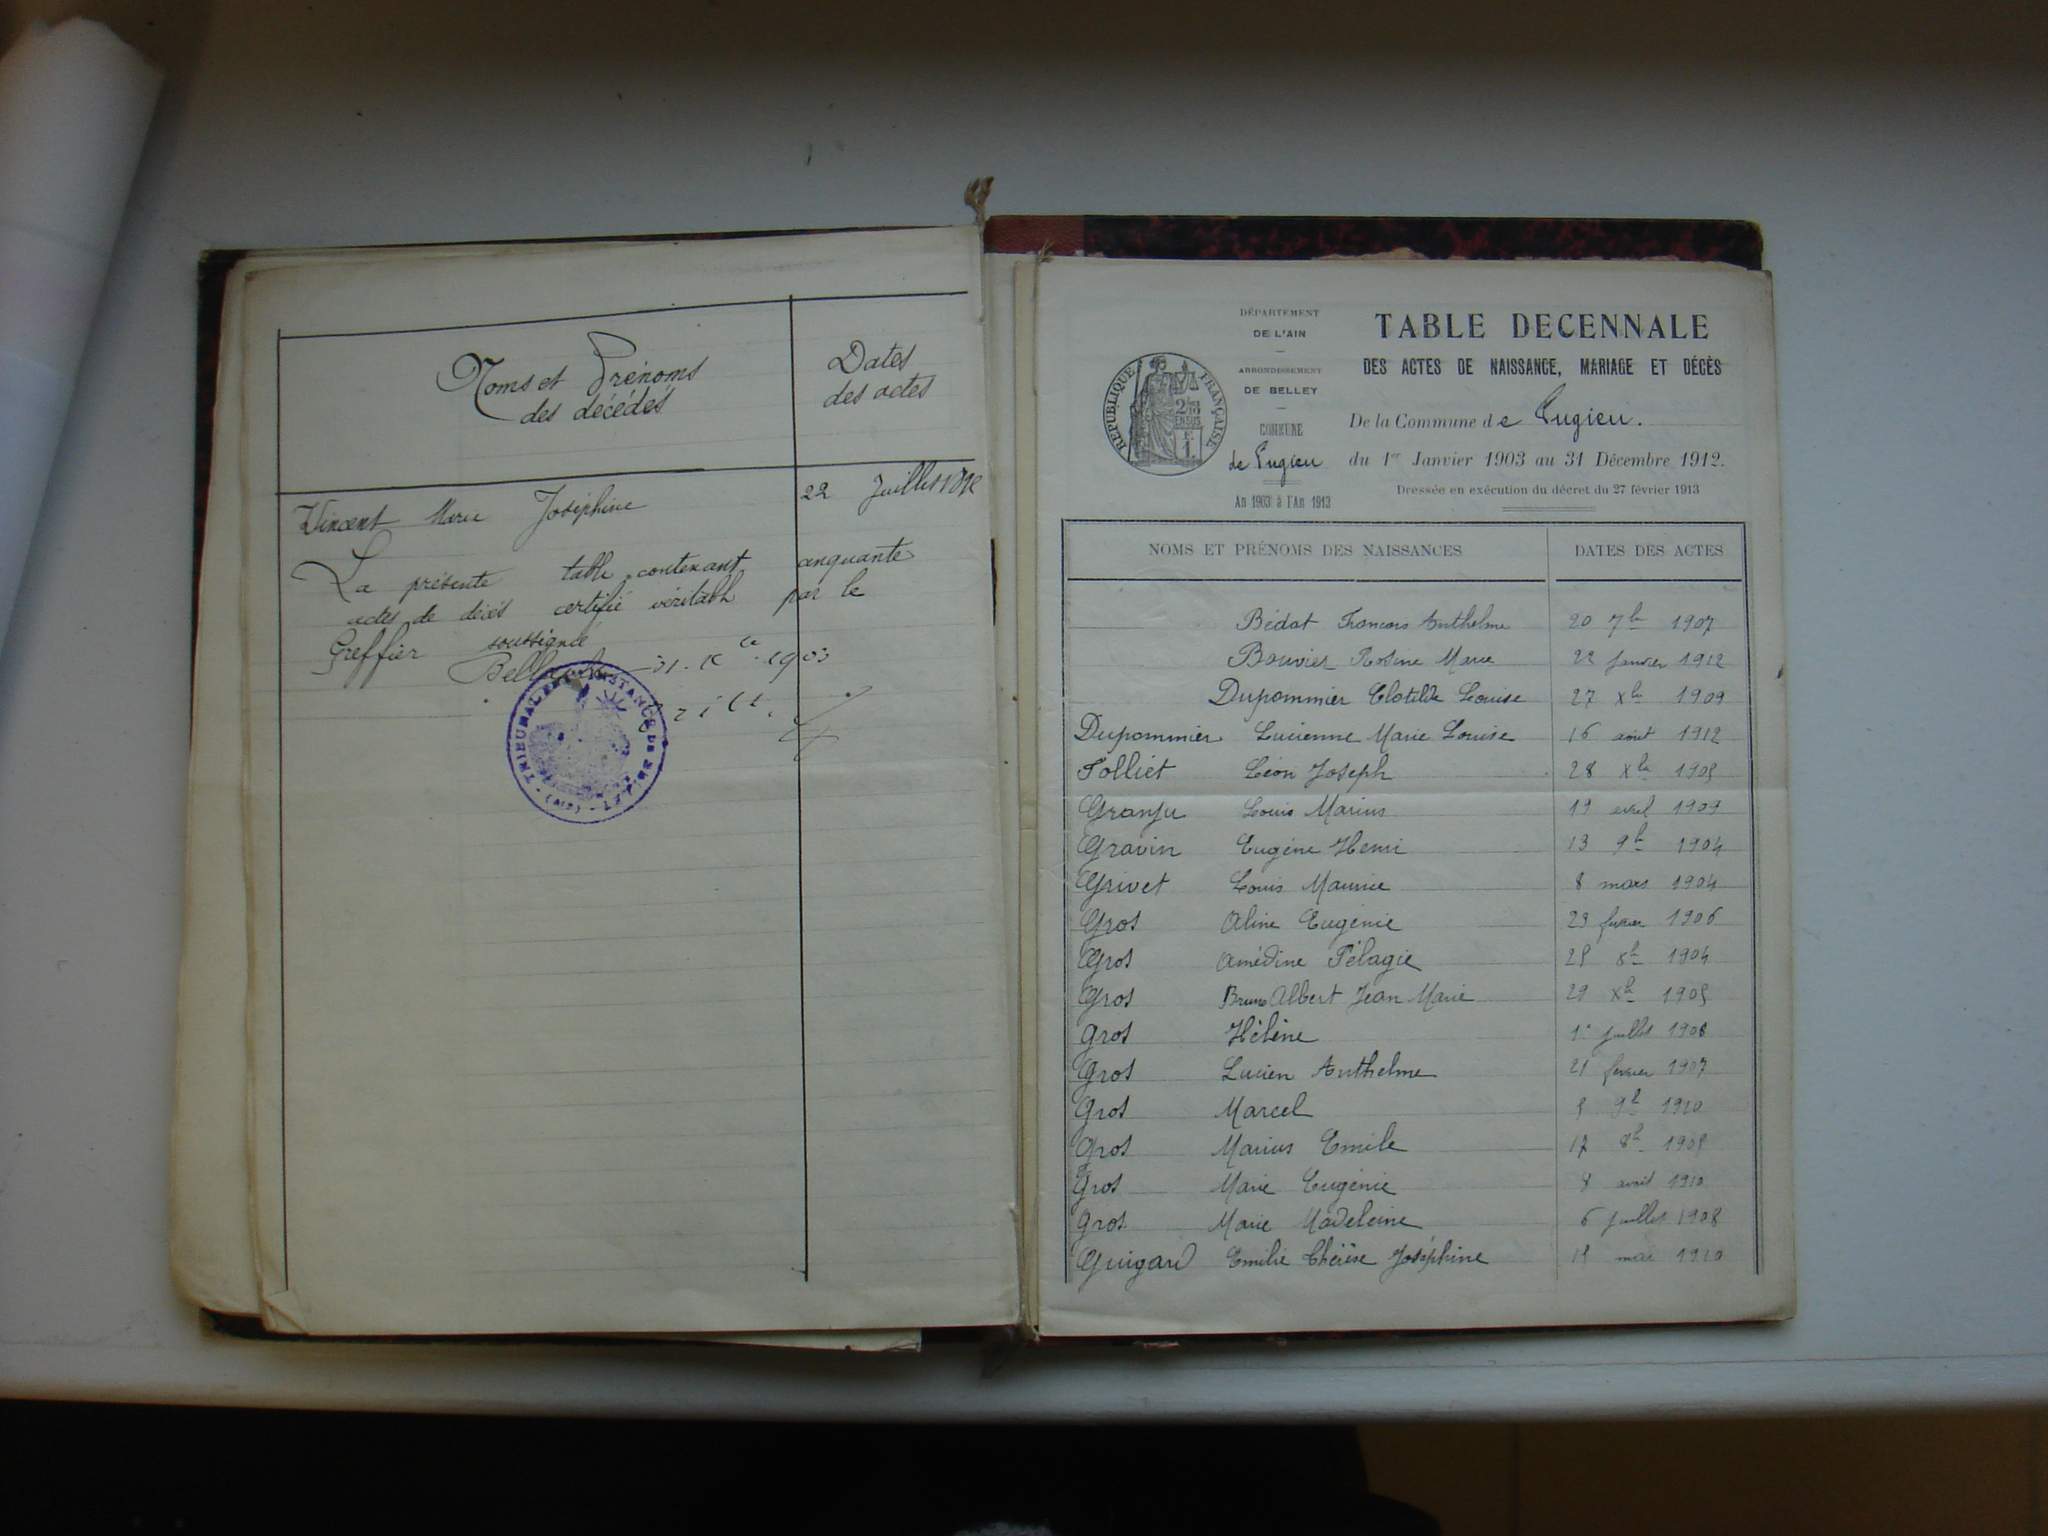 Noms et Prénoms
des décédés
Dates
des actes
Vincent Marie Joséphine 22 Juillet
La présente table contenant cinquante
actes de décès certifié véritable par le
Greffier soussigné
Belley le 31 Xbre 1903
TRIBUNAL INSTANCE DE BELLEY (AIN)
DÉPARTEMENT
DE L'AIN
ARRONDISSEMENT
DE BELLEY
COMMUNE
de Pugieu
An 1903 à l'An 1913
RÉPUBLIQUE FRANÇAISE
2/10
EN SUS
1
TABLE DECENNALE
DES ACTES DE NAISSANCE, MARIAGE ET DÉCÈS
De la Commune de Pugieu.
du 1er Janvier 1903 au 31 Décembre 1912.
Dressée en exécution du décret du 27 février 1913
NOMS ET PRÉNOMS DES NAISSANCES DATES DES ACTES
Bédat François Anthelme 20 7bre 1907
Bouvier Rosine Marie 22 Janvier 1912
Dupommier Clotilde Louise 27 Xbre 1909
Dupommier Lucienne Marie Louise 16 aout 1912
Folliet Léon Joseph 28 Xbre 1905
Granju Louis Marius 19 avril 1909
Gravin Eugène Henri 13 9b 1904
Grivet Louis Maurice 8 mars 1904
Gros Aline Eugénie 23 fevrier 1906
Gros Amédine Pélagie 25 8b 1904
Gros Bruno Albert Jean Marie 29 Xb 1905
Gros Hélène 1er juillet 1908
Gros Lucien Anthelme 21 fevrier 1907
Gros Marcel 5 9b 1910
Gros Marius Emile 17 8b 1905
Gros Marie Eugénie 8 avril 1910
Gros Marie Madeleine 6 juillet 1908
Guigard Emilie Thérèse Joséphine 15 mai 1910